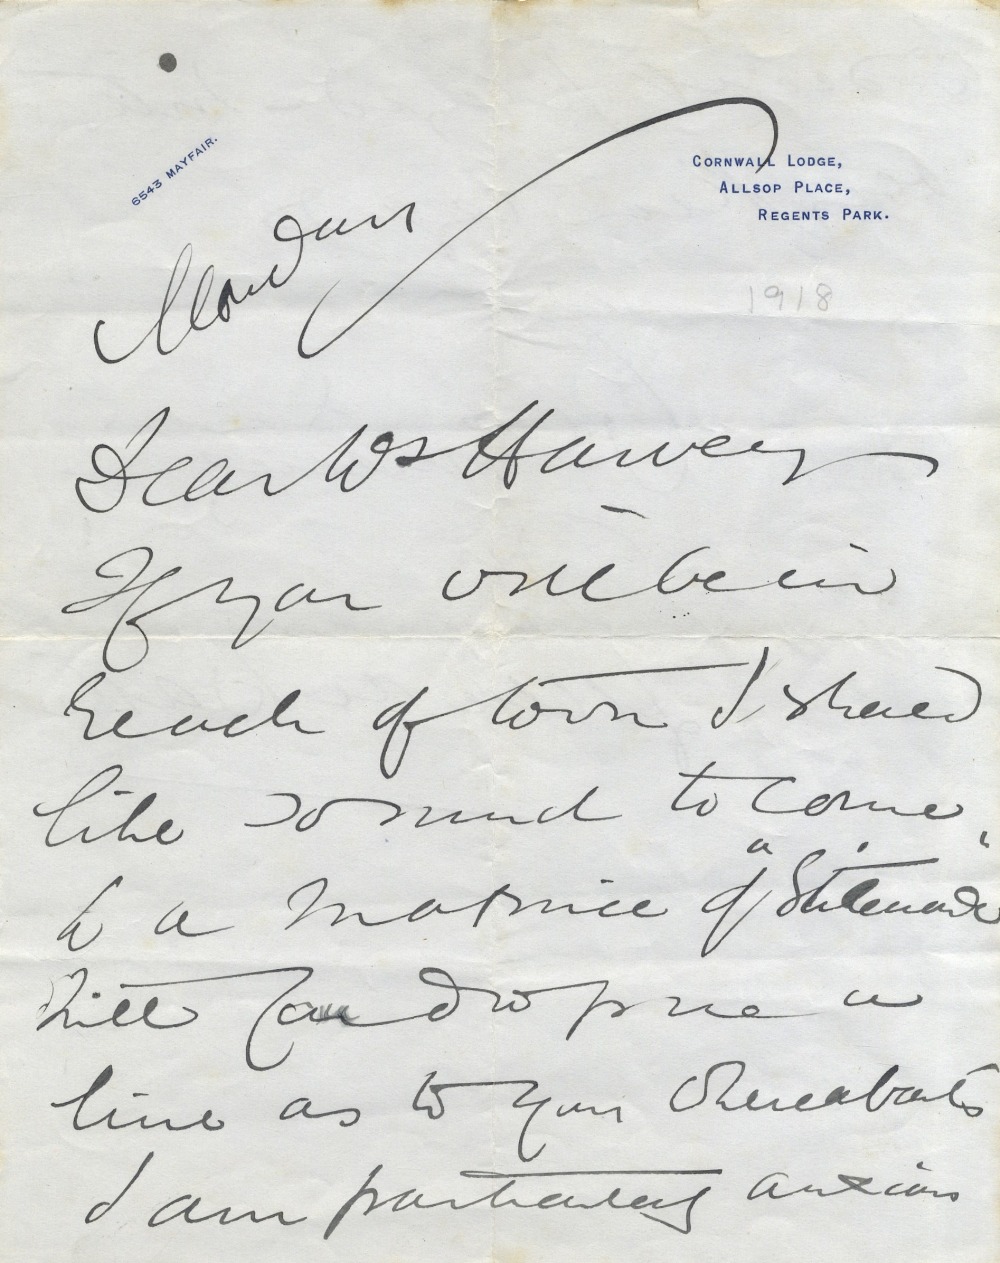 6543 MAYFAIR.
CORNWALL LODGE,
ALLSOP PLACE,
REGENTS PARK.
Monday
1918
Dear Mr Harvey
If you will be in
reach of town I shall
like so much to come
to a matinee of a "
drop me a
line as to your whereabouts
I am particularly anxious